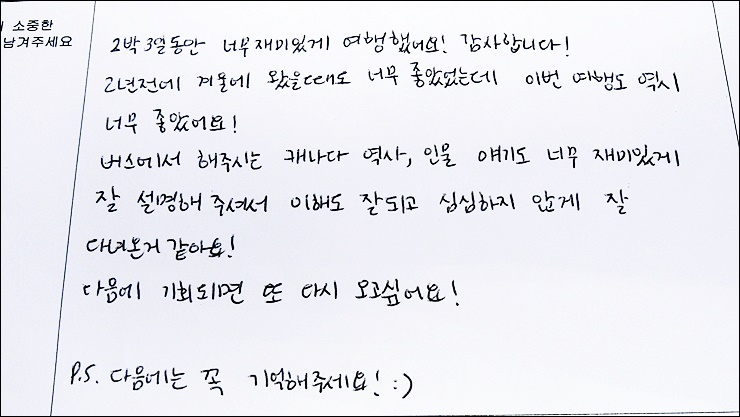 소중한
남겨주세요
2박 3일동안 너무 재미있게 여행했어요! 감사합니다!
2년전에 겨울에 왔을때도 너무 좋았었는데 이번 여행도 역시
너무 좋았어요!
버스에서 해주시는 캐나다 역사, 인물 얘기도 너무 재미있게
잘 설명해 주셔서 이해도 잘되고 심심하지 않게 잘
다녀온거 같아요!
다음에 기회되면 또 다시 오고싶어요!
P.S. 다음에는 꼭 기억해주세요! :)